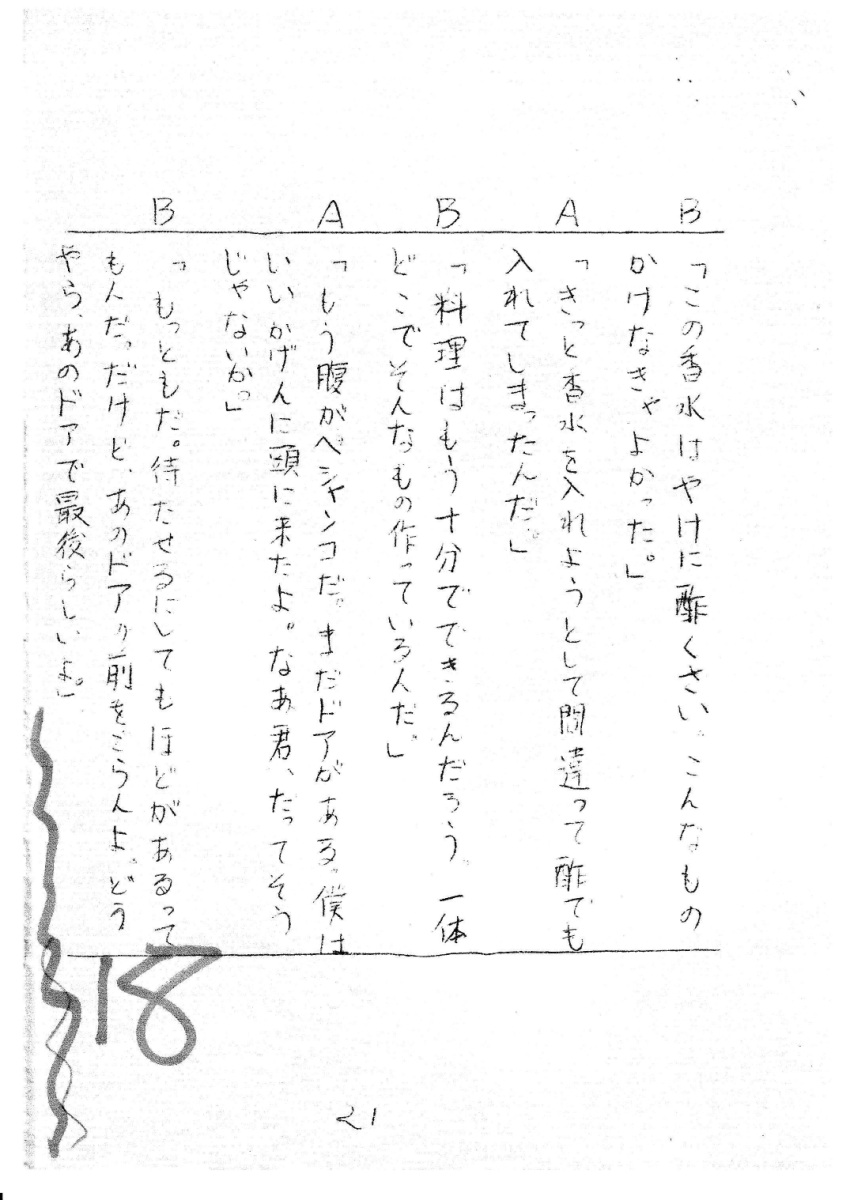 B「この香水はやけに酢くさい。こんなもの
かけなきゃよかった。」
A「きっと香水を入れようとして間違って酢でも
入れてしまったんだ。」
B「料理はもう十分でできるんだろう。一体
どこでそんなもの作っている人だ。」
A「もう腹がペシャンコだ。まだドアがある。僕は
いいかげんに頭に来たよ。なあ君、だってそう
じゃないか。」
B「もっともだ。待たせるにしてもほどがあるって
もんだ。だけど、あのドアの前をごらんよ。どう
やら、あのドアで最後らしいよ。」
18
21